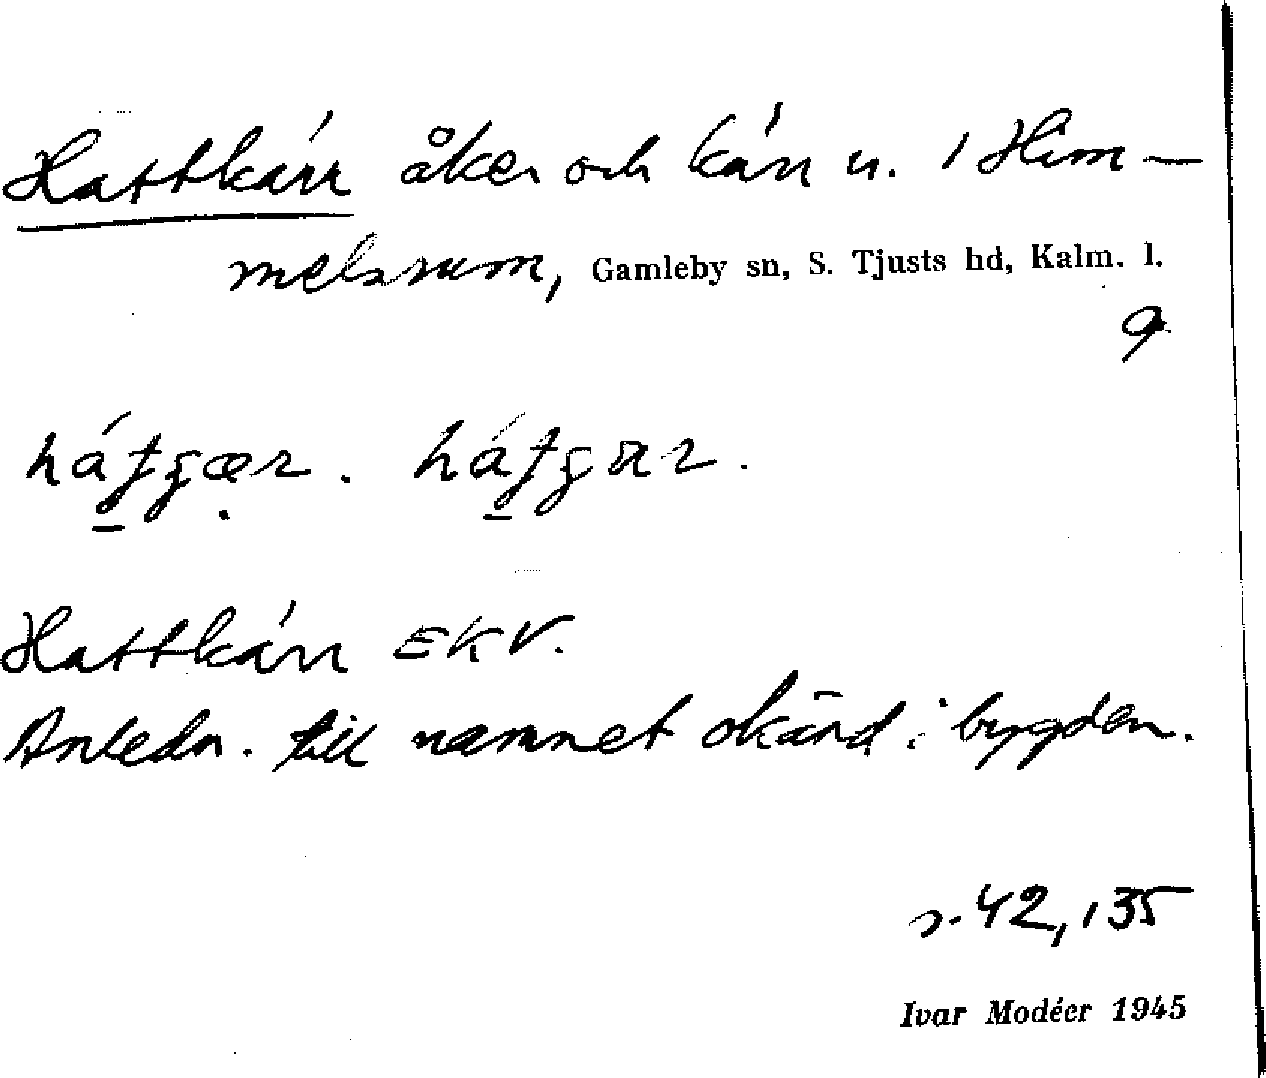 Hattkärr åker och kärr u. 1 Him-
melsrum, Gamleby sn, S. Tjusts hd, Kalm. l.
Hattkärr EKV.
Anledn. till namnet okänd i bygden.
s. 42, 135
Ivar Modéer 1945